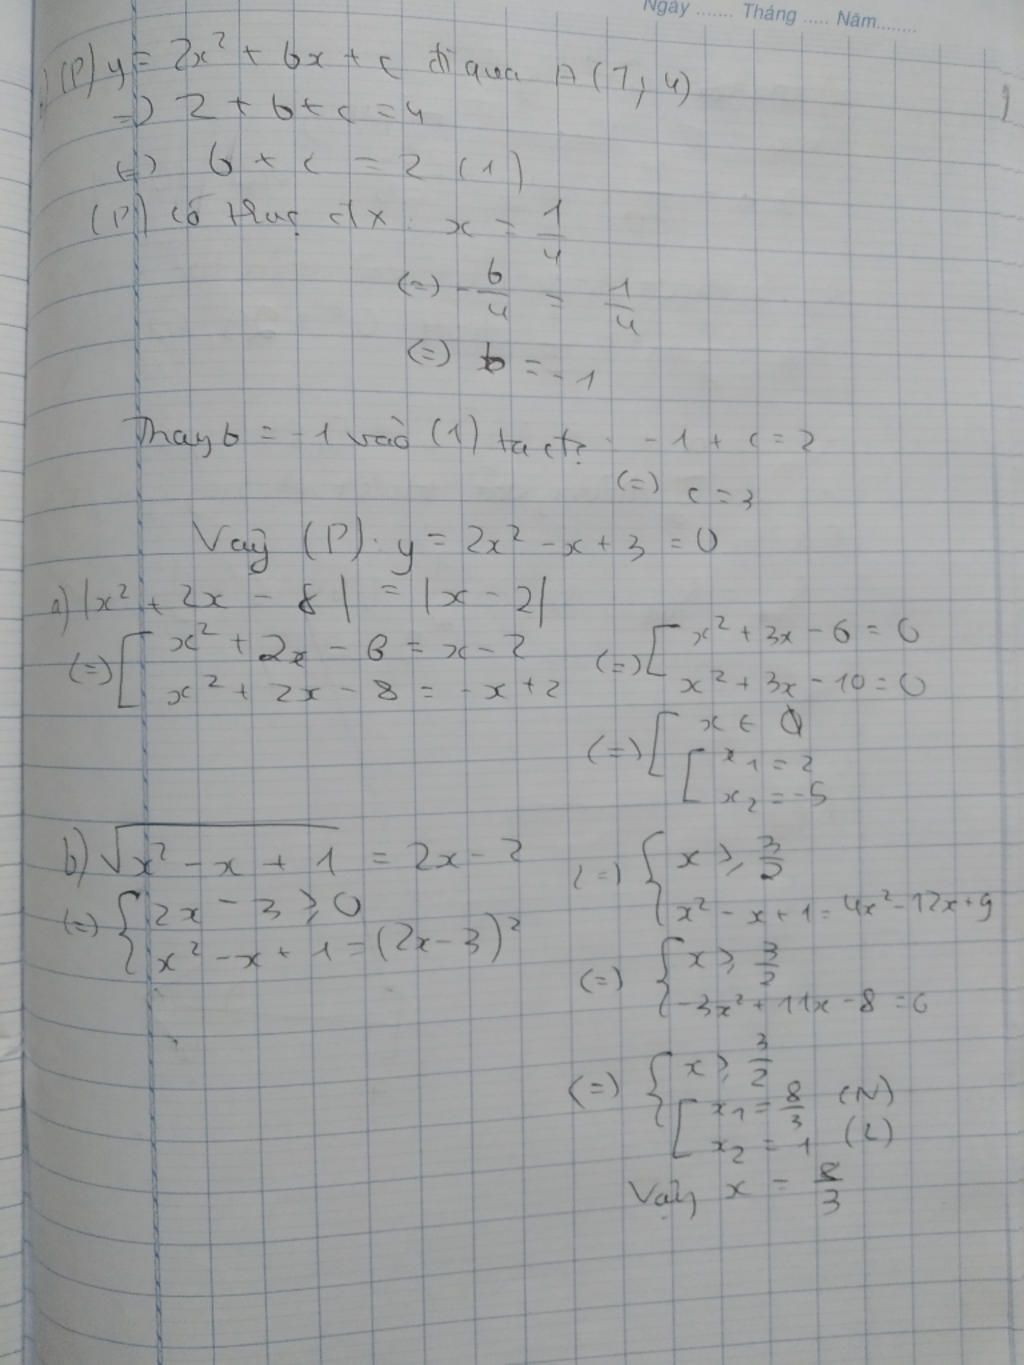 Ngày ....... Tháng ..... Năm........
(P) y = 2x² + bx + c đi qua A (1, 4)
=> 2 + b + c = 4
(=) b + c = 2 (1)
(P) có trục đx: x = 1/4
(=) -b/4 = 1/4
(=) b = -1
Thay b = -1 vào (1) ta có: -1 + c = 2
(=) c = 3
Vậy (P): y = 2x² - x + 3 = 0
a) |x² + 2x - 8| = |x - 2|
(=) [ x² + 2x - 8 = x - 2
x² + 2x - 8 = -x + 2
(=) [ x² + 3x - 6 = 0
x² + 3x - 10 = 0
(=) [ x ∈ ∅
[ x₁ = 2
x₂ = -5
b) √x² - x + 1 = 2x - 2
(=) { 2x - 3 ⩾ 0
x² - x + 1 = (2x - 3)²
(=) { x ⩾ 3/2
x² - x + 1 = 4x² - 12x + 9
(=) { x ⩾ 3/2
-3x² + 11x - 8 = 0
(=) { x ⩾ 3/2
[ x₁ = 8/3 (N)
x₂ = 1 (L)
Vậy x = 8/3